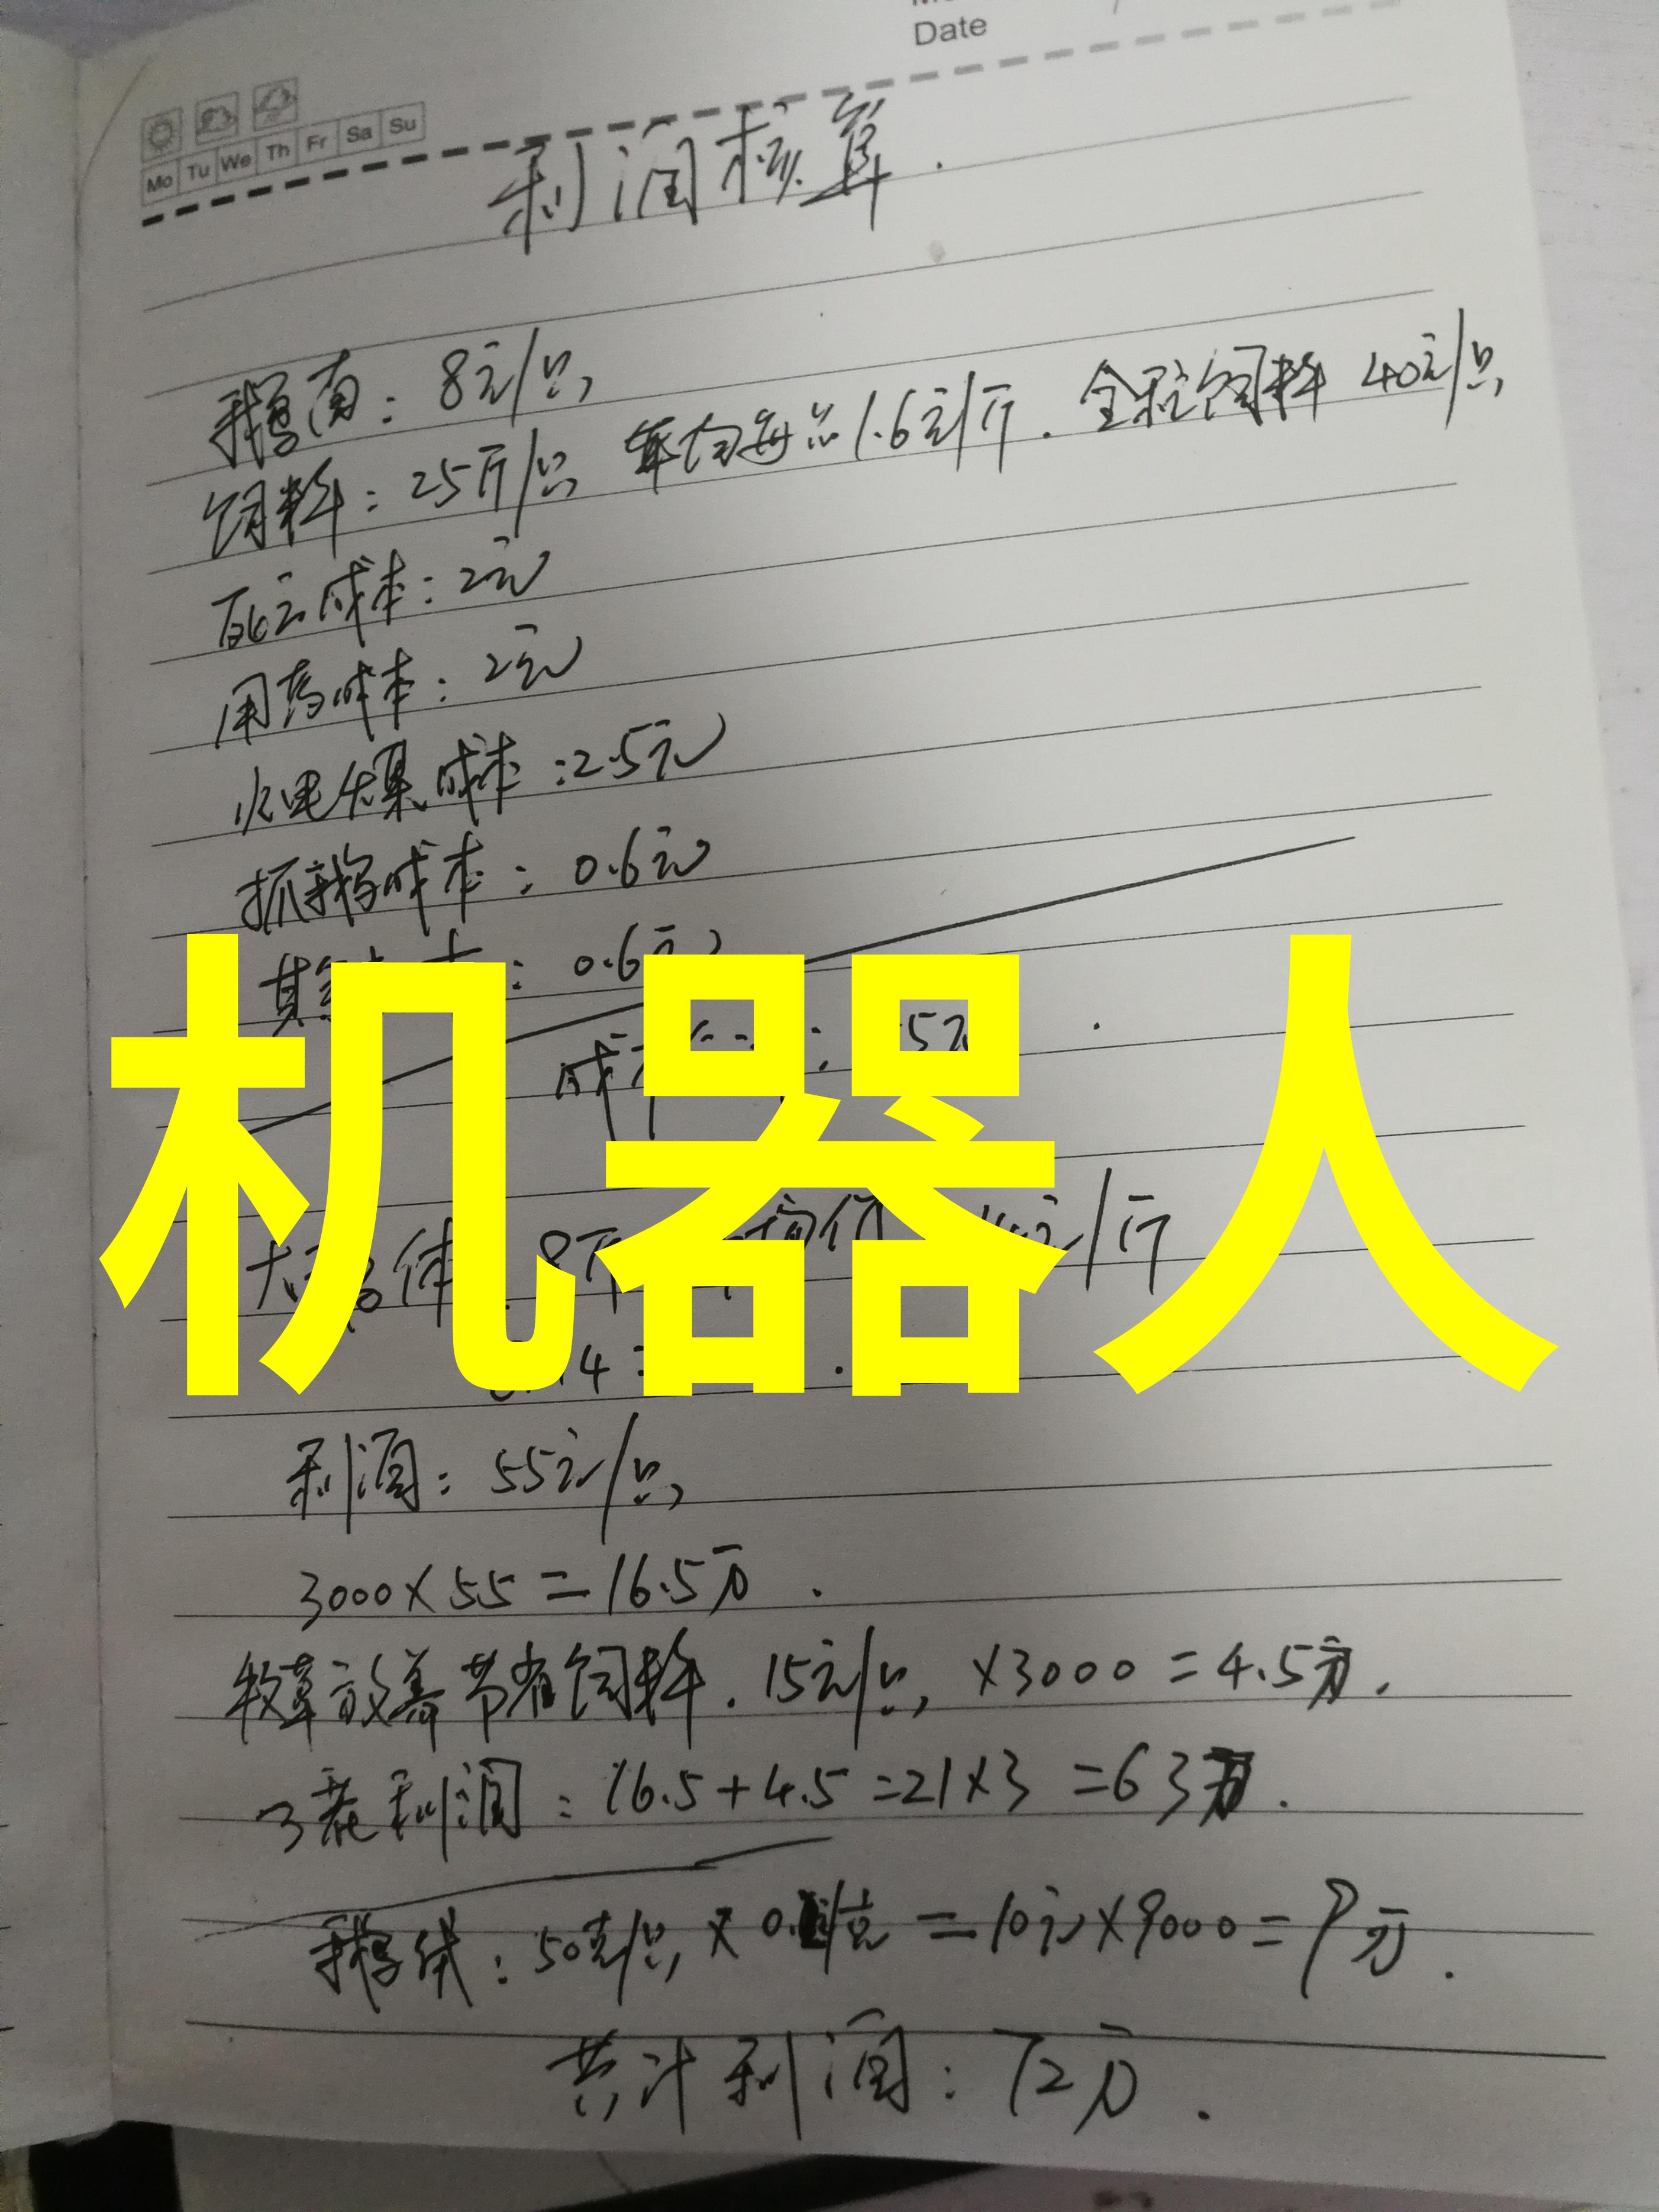 Date
Mo Tu We Th Fr Sa Su
利润核算.
鹅苗: 8元/只
饲料: 25斤/只 平均每 1.6元/斤. 全程饲料 40元/只
死亡成本: 2元
用药成本: 2元
水电煤成本: 2.5元
抓鹅成本: 0.6元
: 0.6元
机器人
元/斤
利润: 55元/只
3000×55=16.5万.
牧草放养节省饲料. 15元/只 ×3000=4.5万.
3茬利润: 16.5+4.5=21×3=63万.
鹅绒: 50克/只 × /克 =10元×9000=9万.
共计利润: 72万.